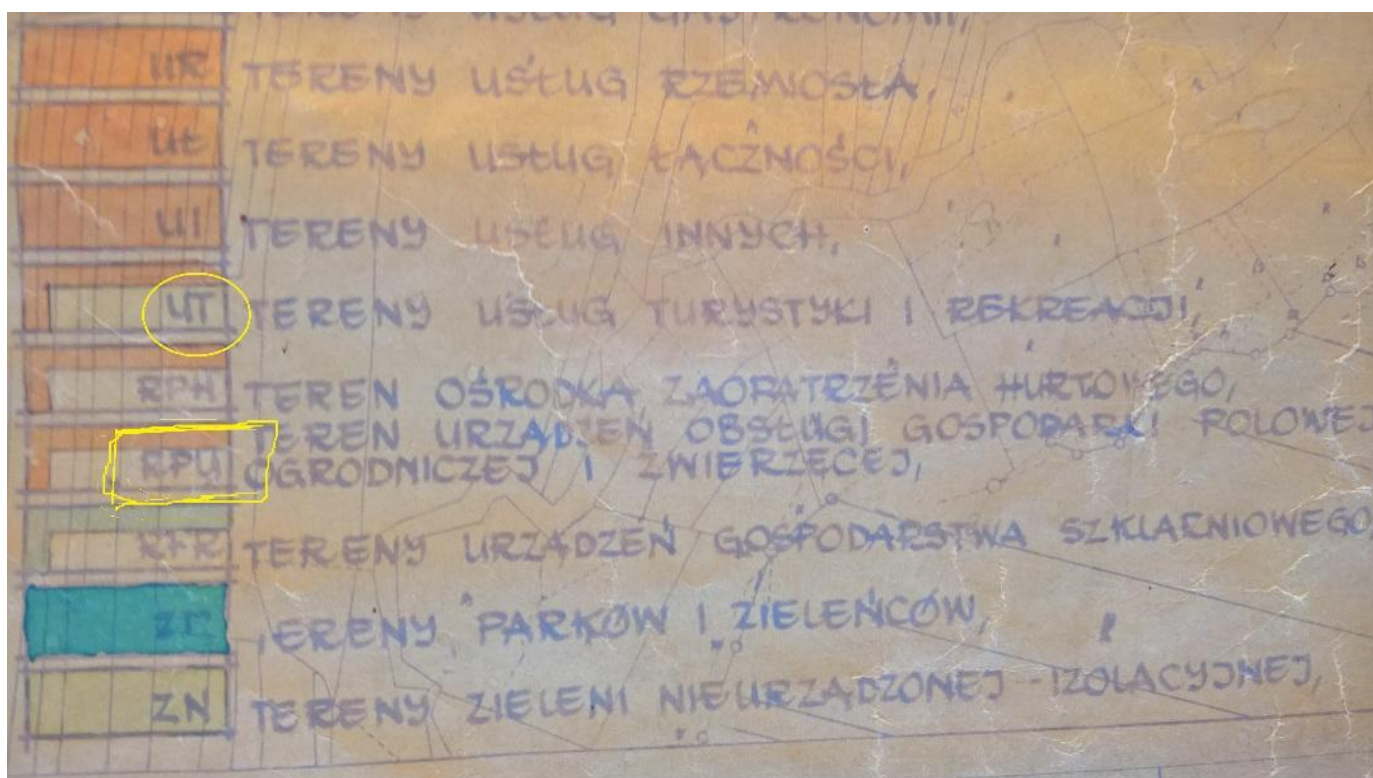 TERENY USŁUG GASTRONOMII,
UR TERENY USŁUG RZEMIOSŁA,
UŁ TERENY USŁUG ŁĄCZNOŚCI,
UI TERENY USŁUG INNYCH,
UT TERENY USŁUG TURYSTYKI I REKREACJI,
RPH TEREN OŚRODKA ZAOPATRZENIA HURTOWEGO,
TEREN URZĄDZEŃ OBSŁUGI GOSPODARKI POLOWEJ
RPU OGRODNICZEJ I ZWIERZĘCEJ,
TERENY URZĄDZEŃ GOSPODARSTWA SZKLARNIOWEGO,
TERENY PARKÓW I ZIELEŃCÓW,
ZN TERENY ZIELENI NIEURZĄDZONEJ - IZOLACYJNEJ,